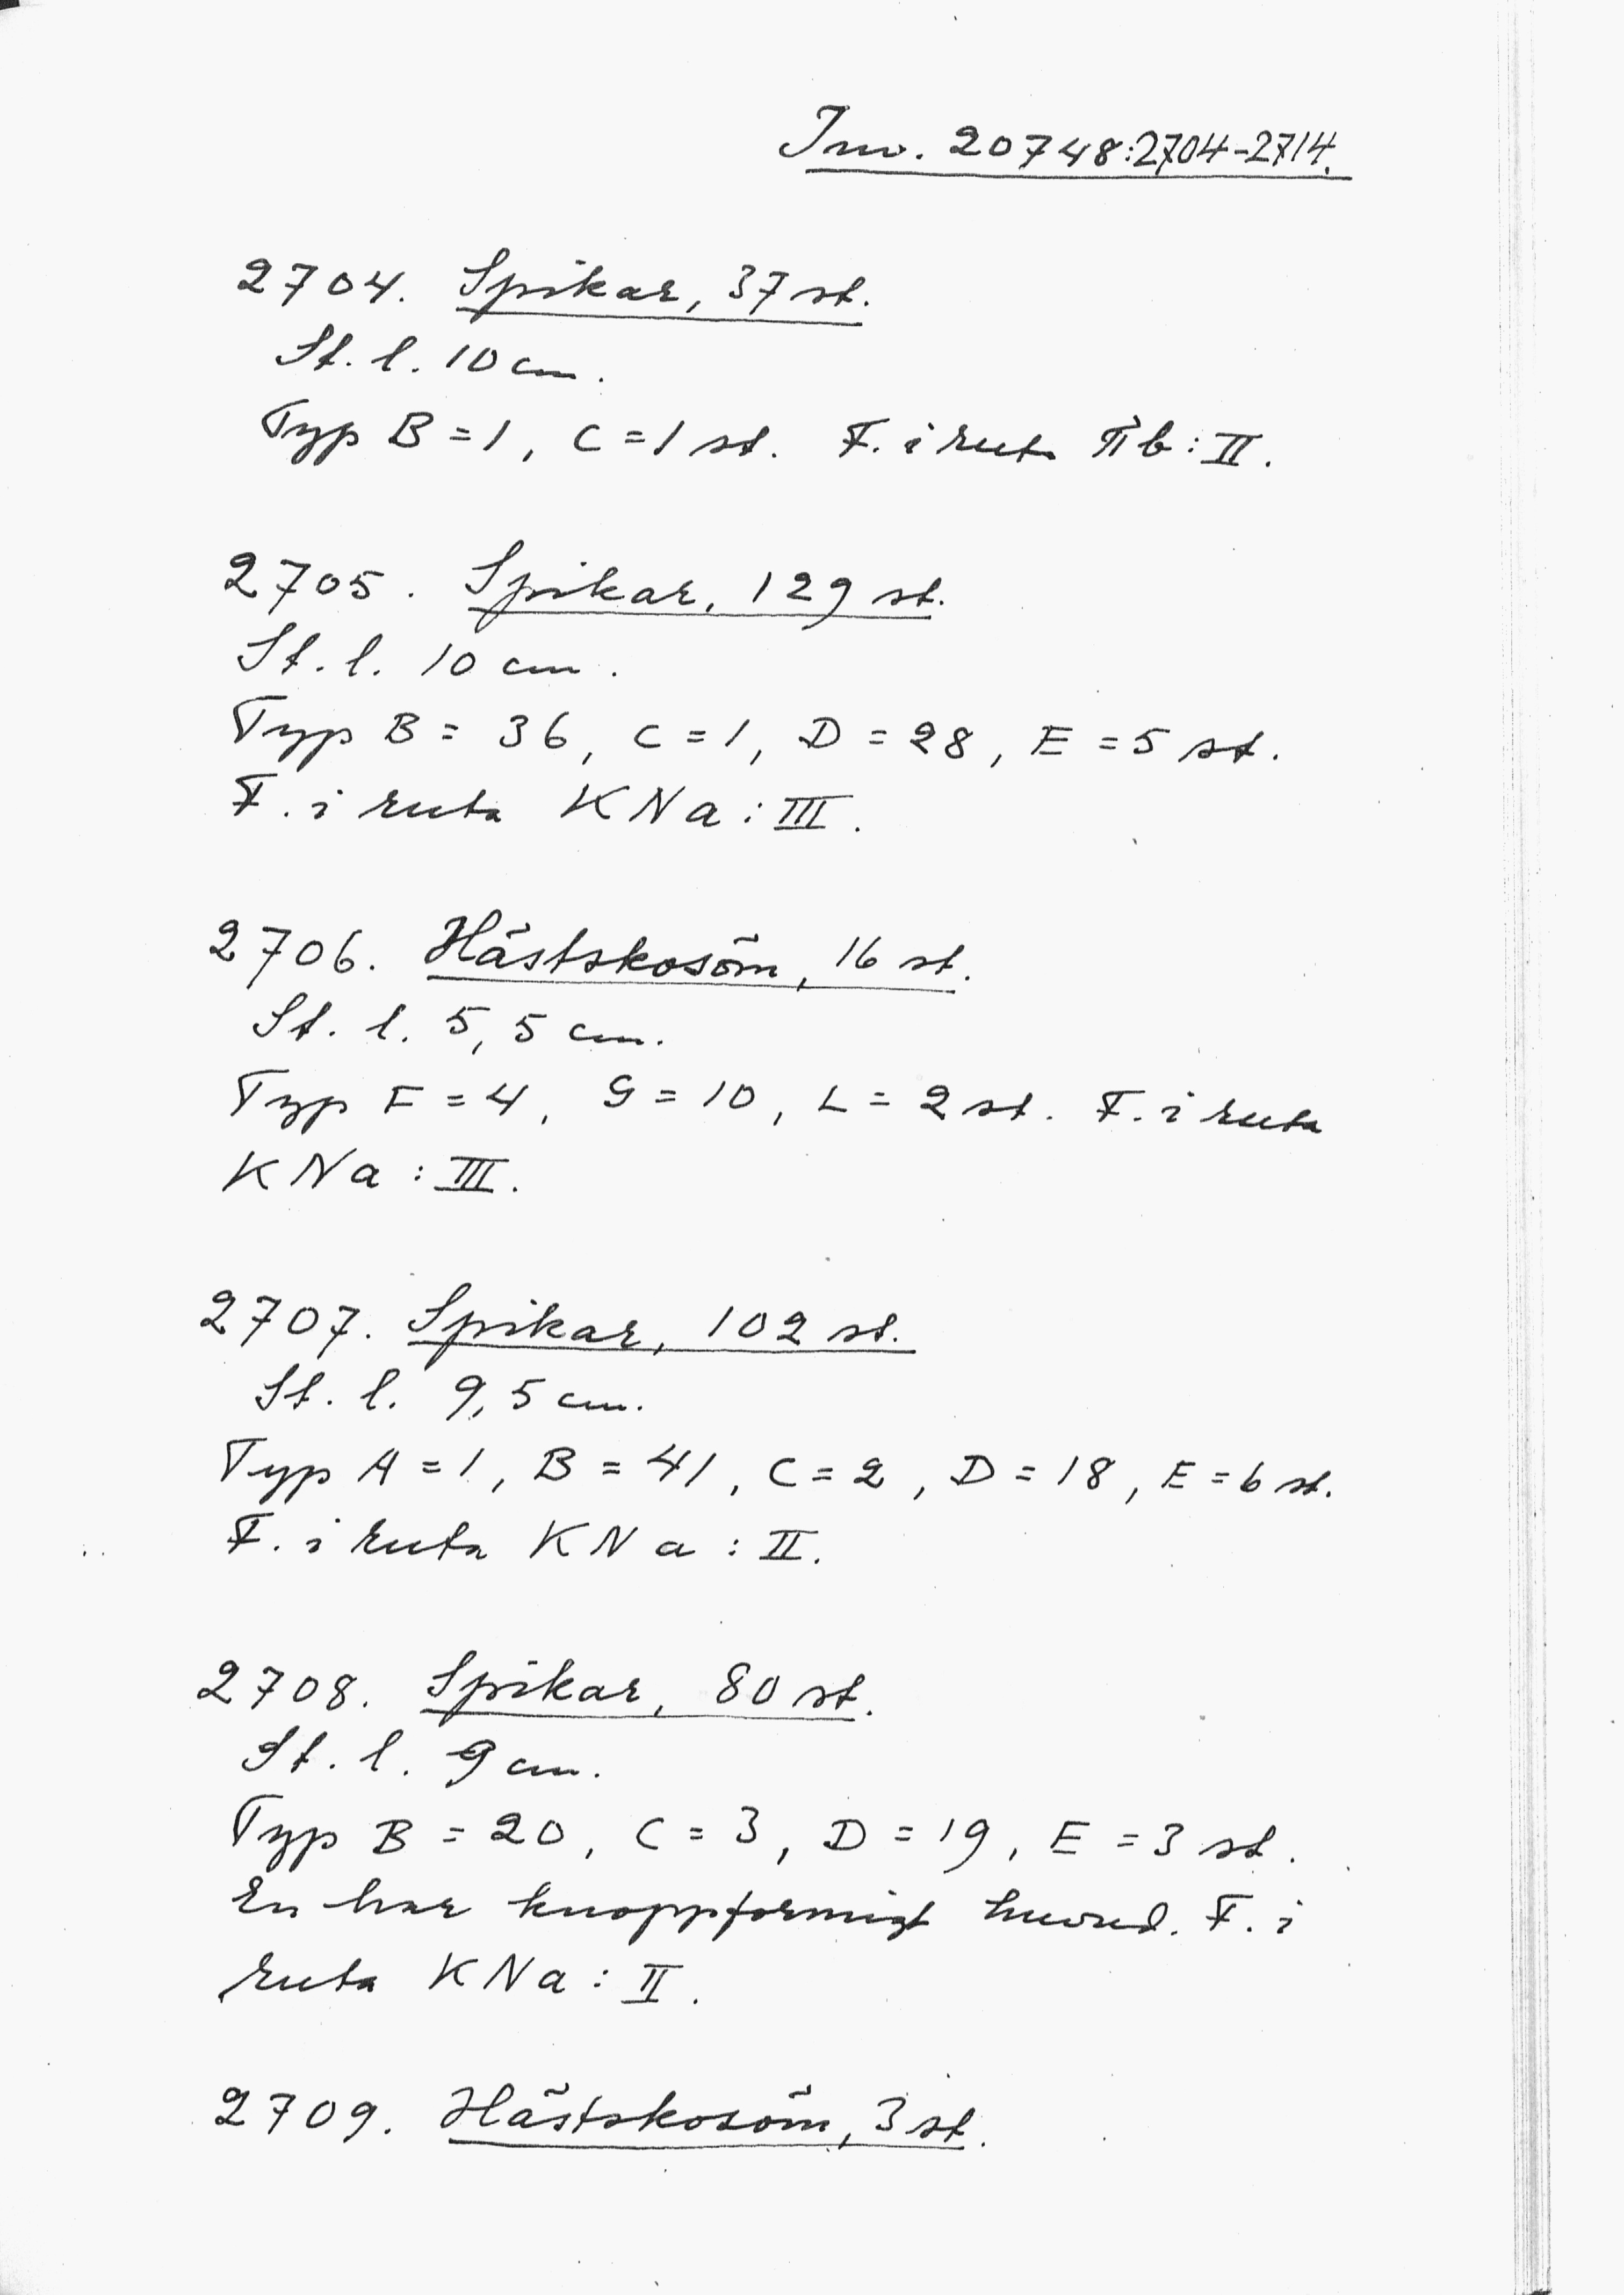 Inv. 20748:2704-2714.
2704. Spikar, 37 st.
St. l. 10 cm.
Typ B = 1, C = 1 st. F. i ruta b : II.
2705. Spikar, 129 st.
St. l. 10 cm.
Typ B = 36, C = 1, D = 28, E = 5 st.
F. i ruta KNa : III.
2706. Hästskosöm, 16 st.
St. l. 5,5 cm.
Typ F = 4, G = 10, L = 2 st. F. i ruta
KNa : III.
2707. Spikar, 102 st.
St. l. 9,5 cm.
Typ A = 1, B = 41, C = 2, D = 18, E = 6 st.
F. i ruta KNa : II.
2708. Spikar, 80 st.
St. l. 9 cm.
Typ B = 20, C = 3, D = 19, E = 3 st.
En har knoppformigt huvud. F. i
ruta KNa : II.
2709. Hästskosöm, 3 st.